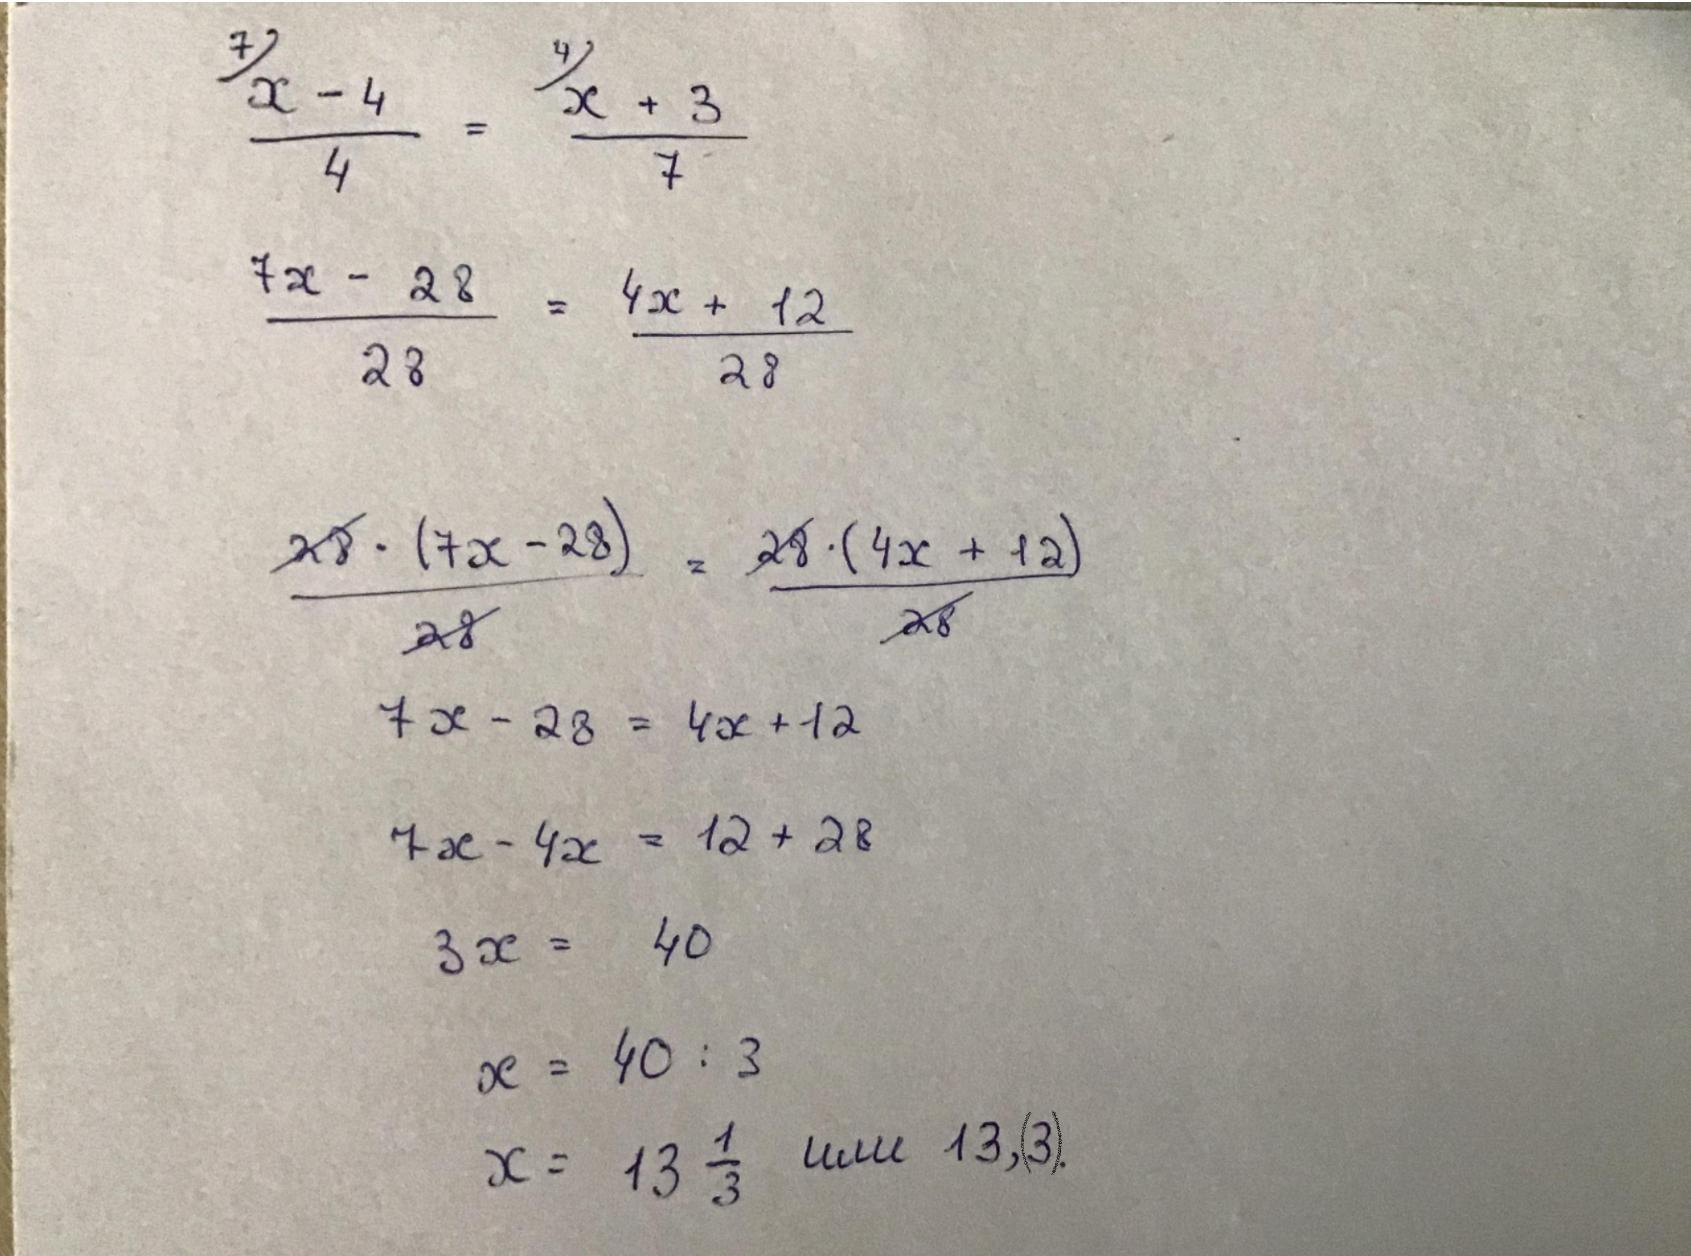 7/ x - 4 / 4 = 4/ x + 3 / 7
7x - 28 / 28 = 4x + 12 / 28
28 · (7x - 28) / 28 = 28 · (4x + 12) / 28
7x - 28 = 4x + 12
7x - 4x = 12 + 28
3x = 40
x = 40 : 3
x = 13 1/3 или 13,(3).